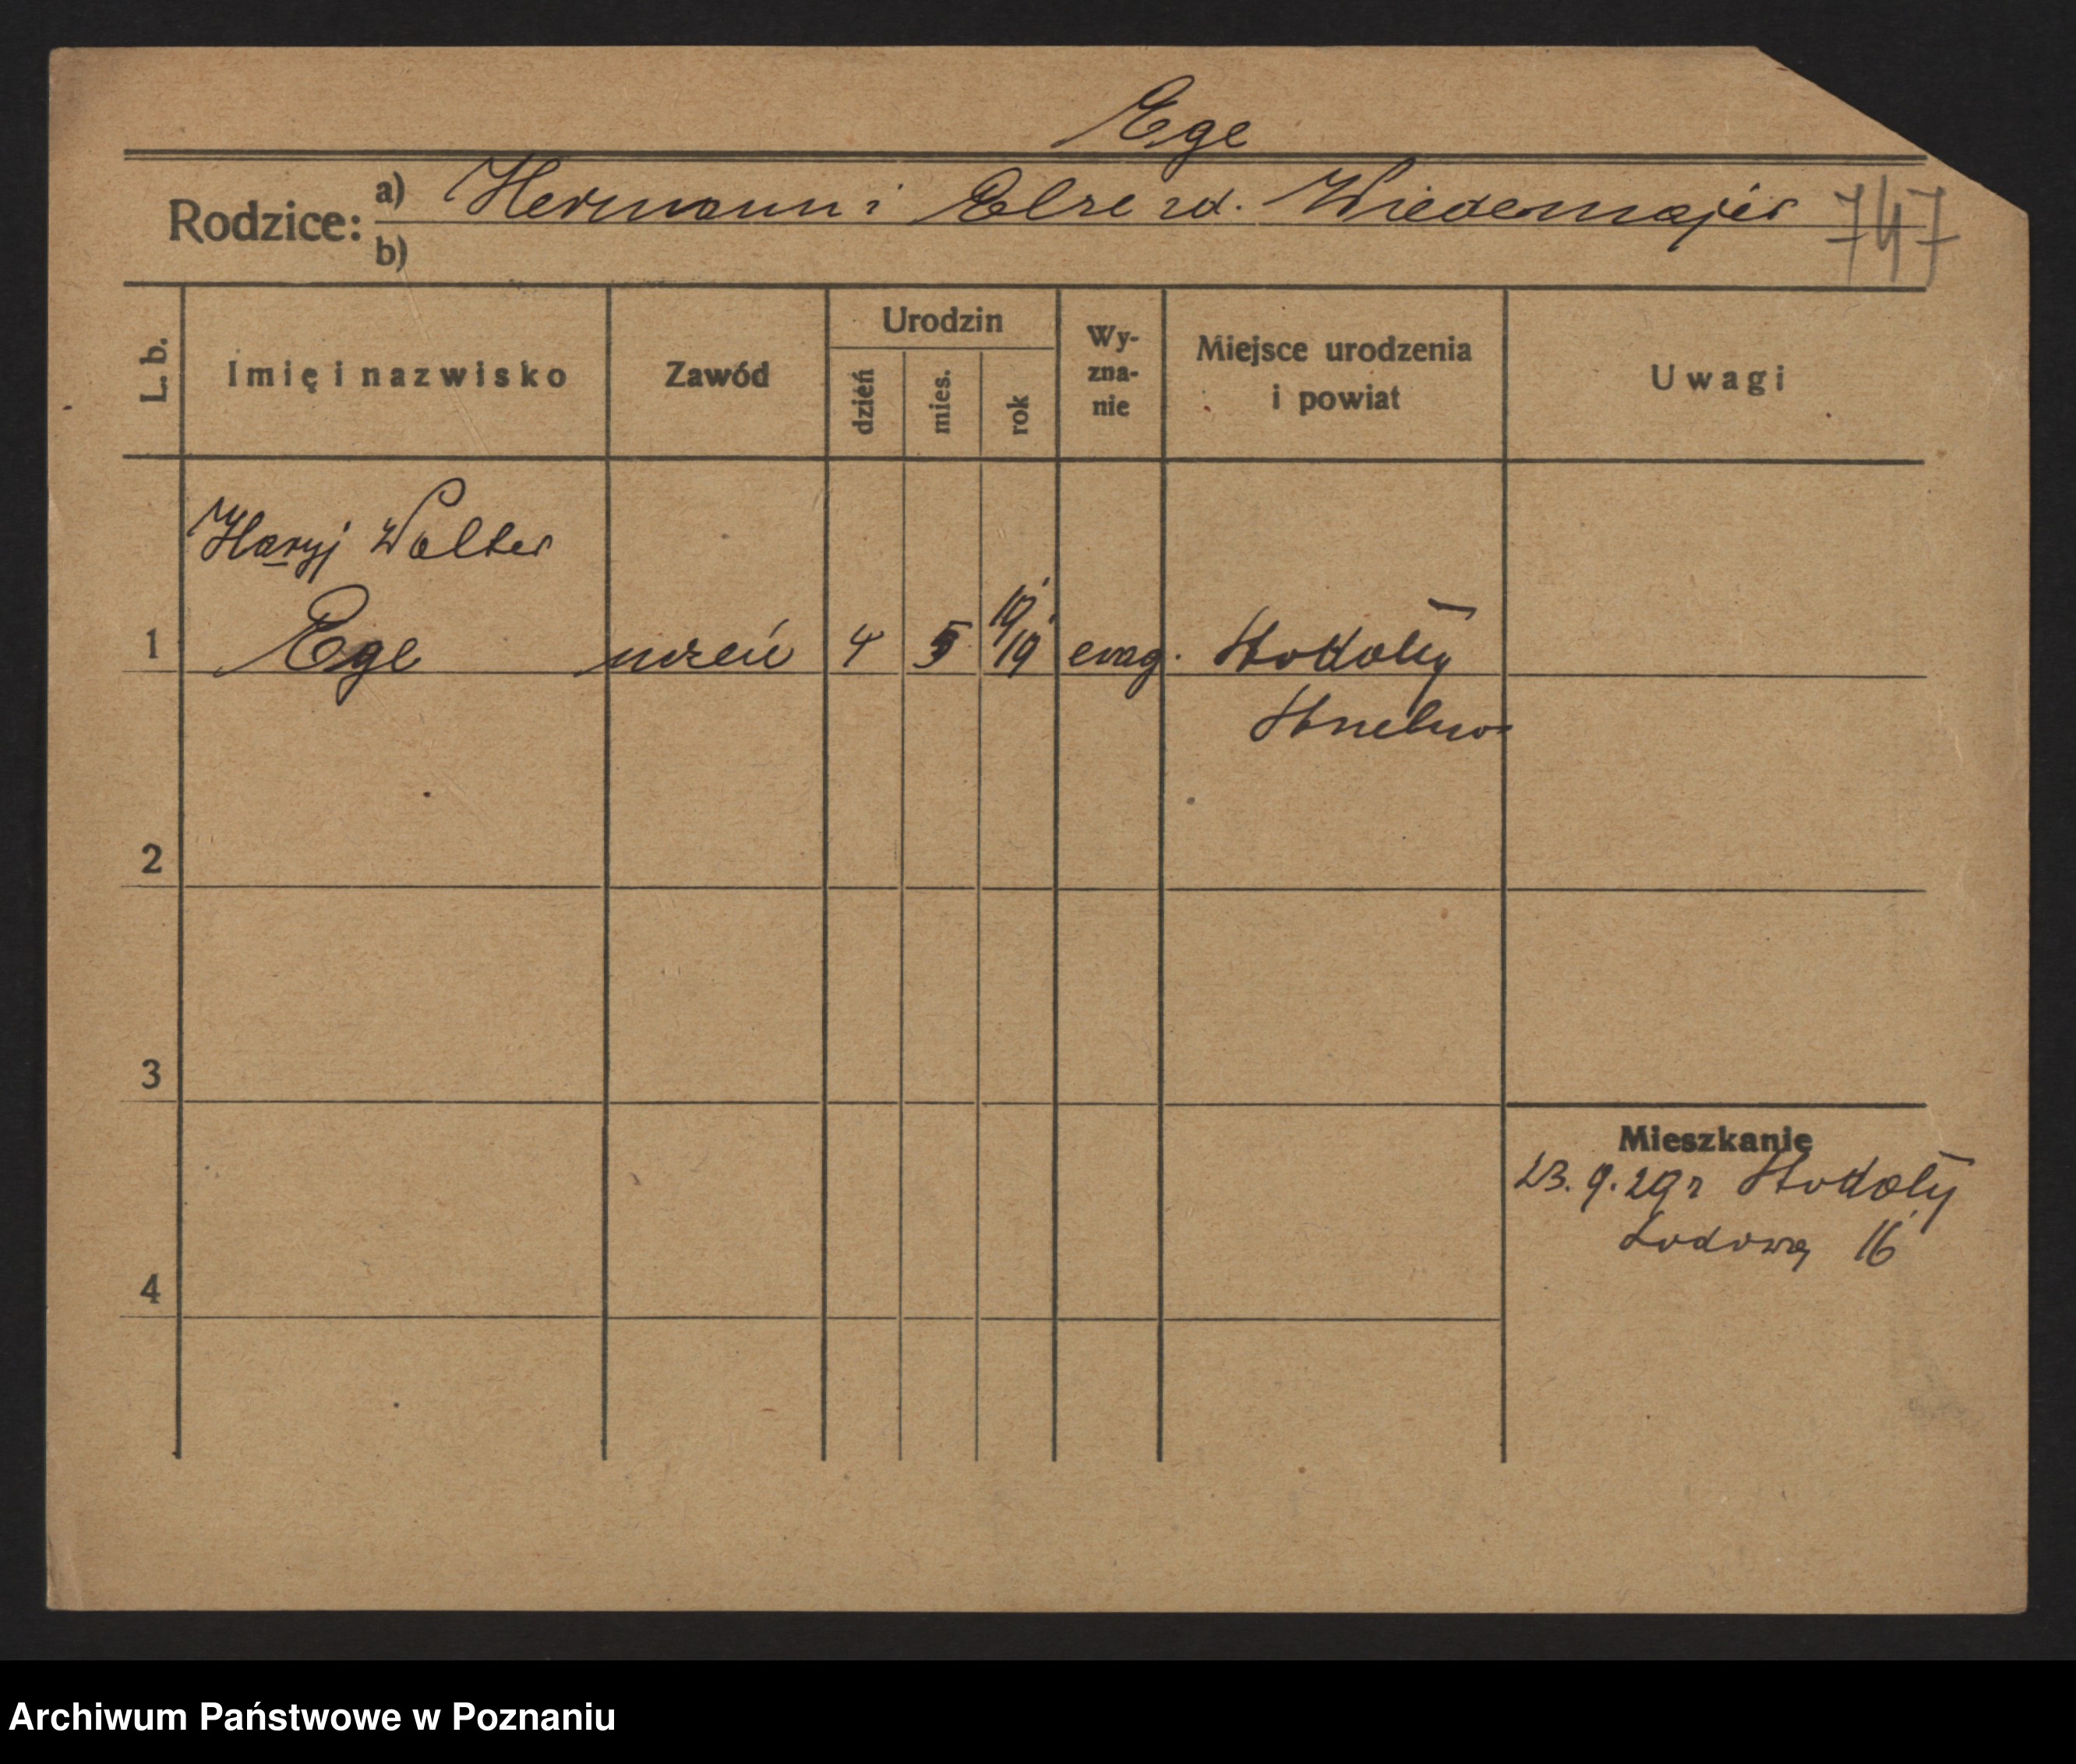 Ege
Rodzice: a) Hermann i Else zd. Wiedemajer 747
b)
L. b. Imię i nazwisko Zawód Urodzin dzień mies. rok Wy-zna-nie Miejsce urodzenia i powiat Uwagi
Haryj Walter
1 Ege uczeń 4 5 19/19 ewag.
2
3
Mieszkanie
23.9.29 r
Lodowa 16
4
Archiwum Państwowe w Poznaniu